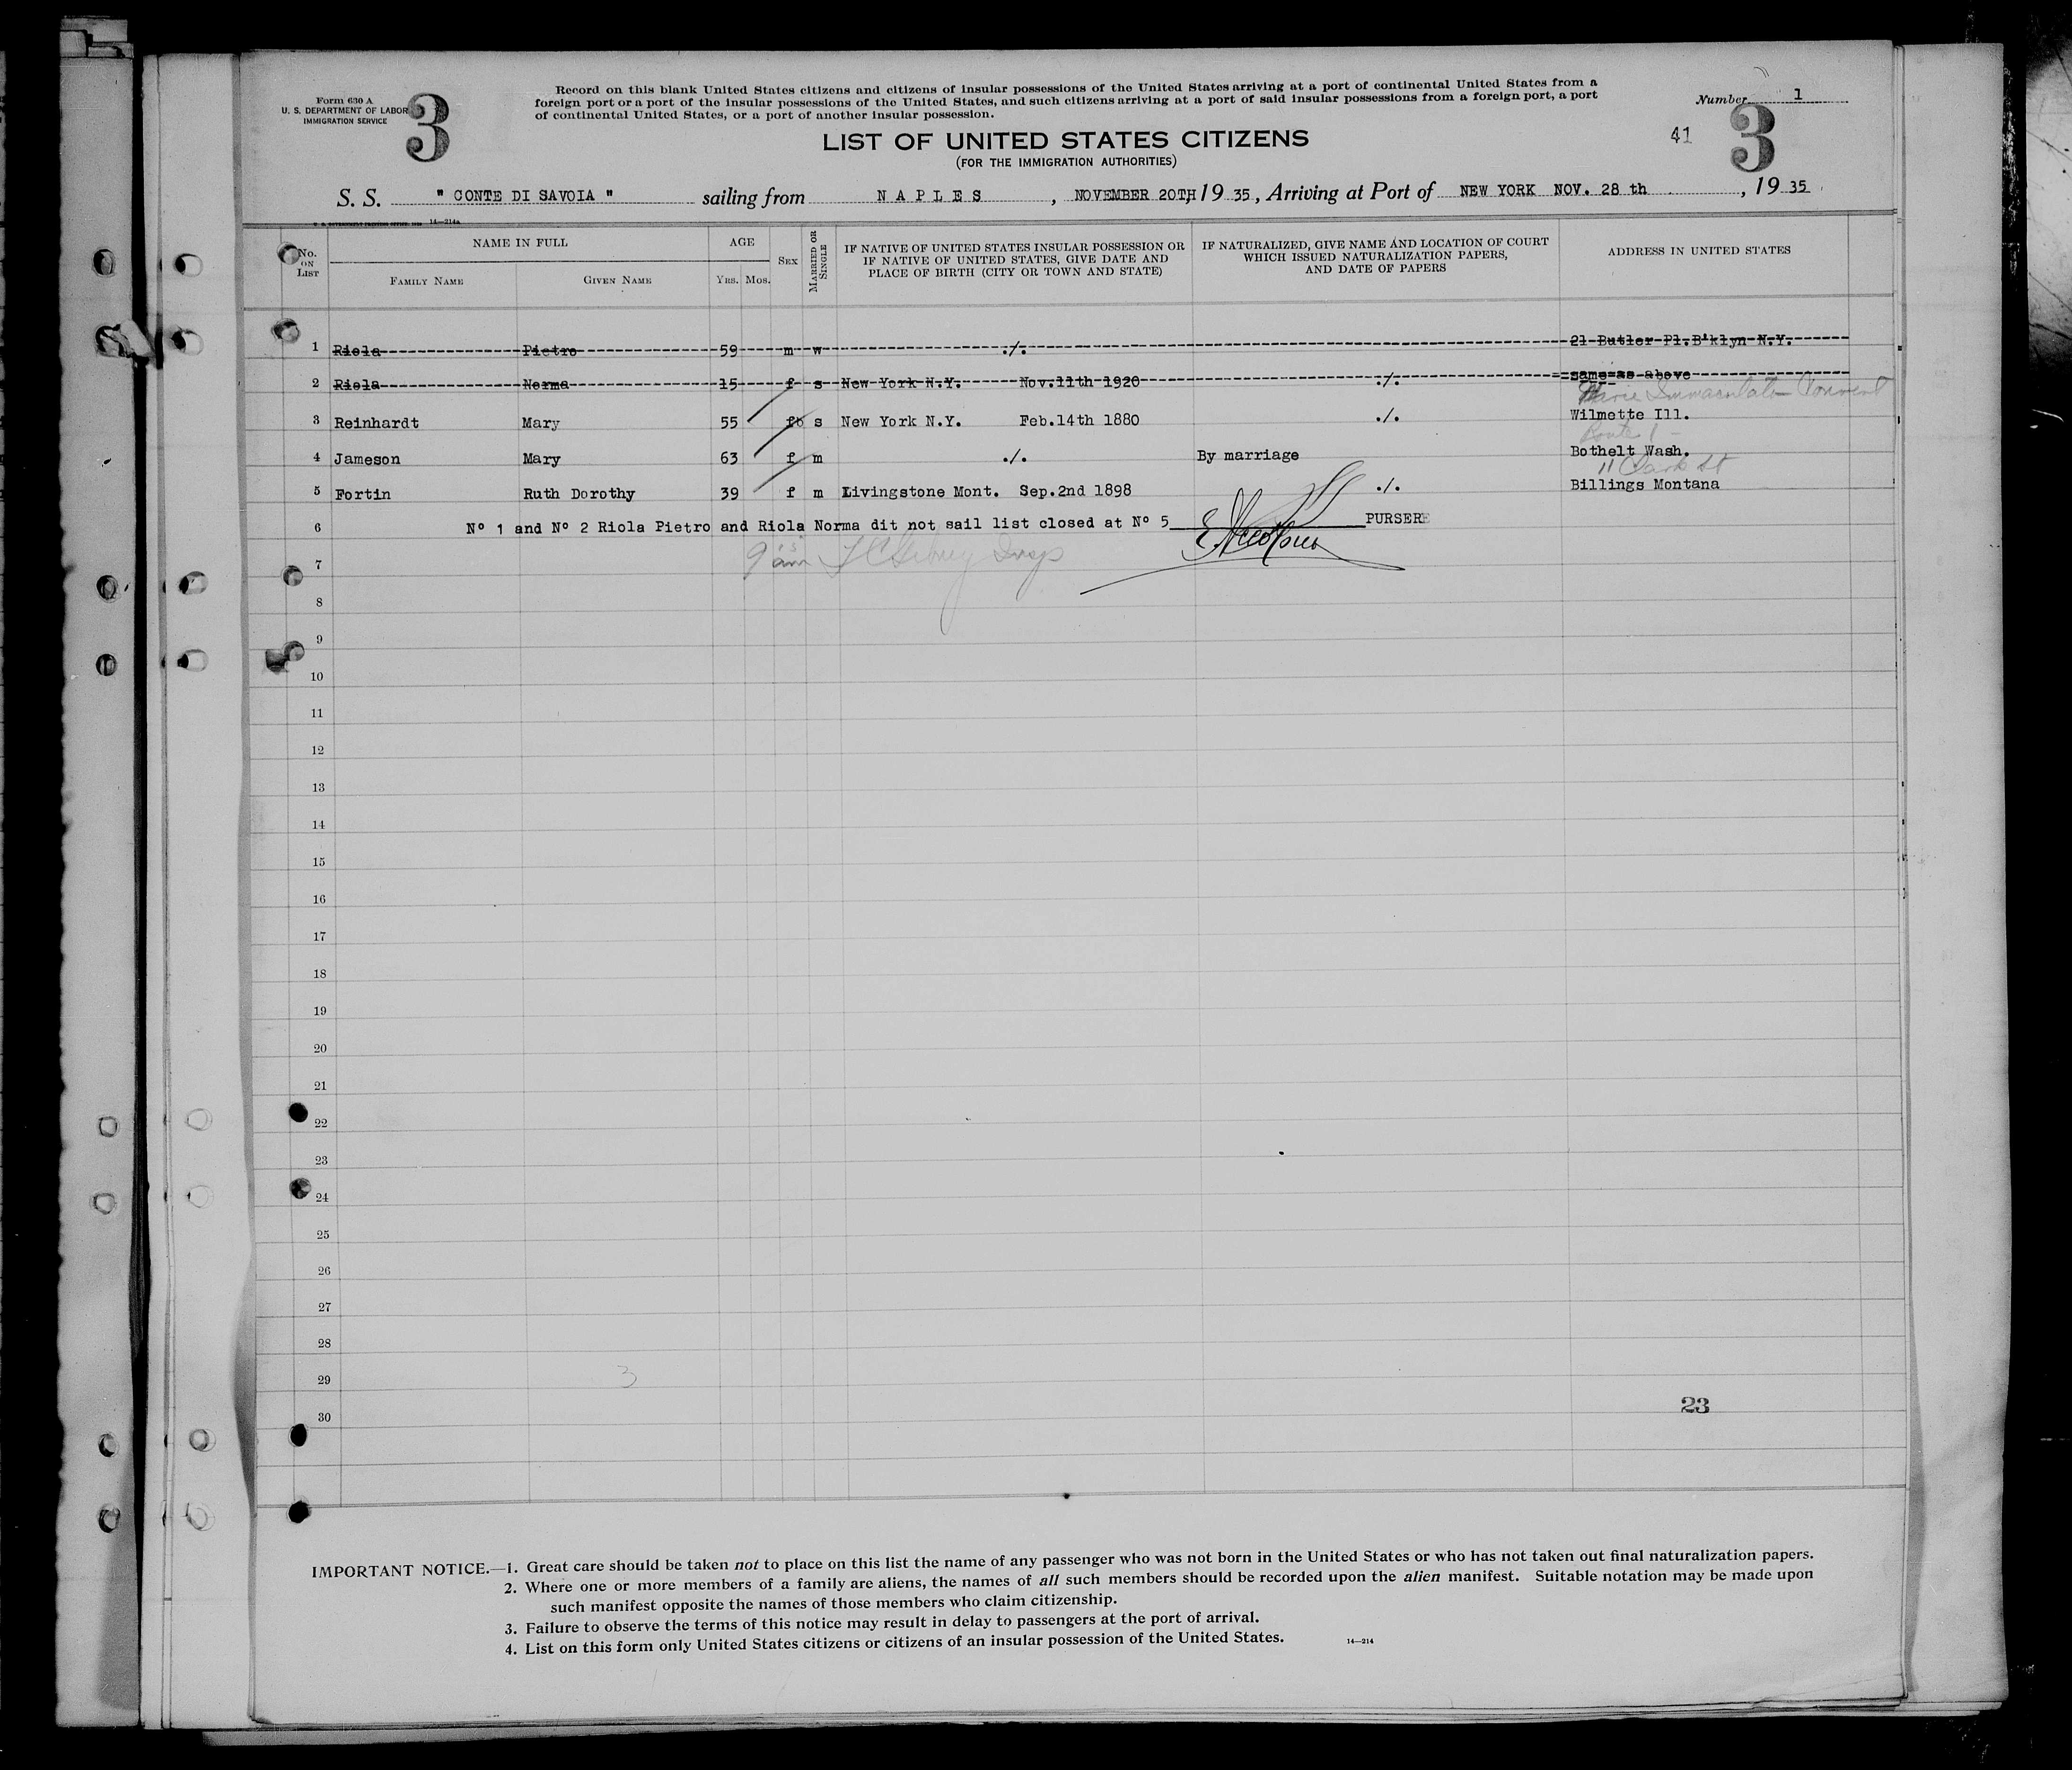 Form 630 A
U. S. DEPARTMENT OF LABOR
IMMIGRATION SERVICE
3
Record on this blank United States citizens and citizens of insular possessions of the United States arriving at a port of continental United States from a
foreign port or a port of the insular possessions of the United States, and such citizens arriving at a port of said insular possessions from a foreign port, a port
of continental United States, or a port of another insular possession.
Number 1
41 3
LIST OF UNITED STATES CITIZENS
(FOR THE IMMIGRATION AUTHORITIES)
S. S. " CONTE DI SAVOIA " sailing from N A P L E S , NOVEMBER 20TH, 19 35, Arriving at Port of NEW YORK NOV. 28 th , 19 35
14—214a
No. ON LIST
NAME IN FULL
FAMILY NAME
GIVEN NAME
AGE
YRS. MOS.
SEX
MARRIED OR SINGLE
IF NATIVE OF UNITED STATES INSULAR POSSESSION OR
IF NATIVE OF UNITED STATES, GIVE DATE AND
PLACE OF BIRTH (CITY OR TOWN AND STATE)
IF NATURALIZED, GIVE NAME AND LOCATION OF COURT
WHICH ISSUED NATURALIZATION PAPERS,
AND DATE OF PAPERS
ADDRESS IN UNITED STATES
1 Riola Pietro 59 m w ./. 21 Butler Pl.B'klyn N.Y.
2 Riola Norma 15 f s New York N.Y. Nov.11th 1920 ./. same as above
Marie Immaculate Convent
3 Reinhardt Mary 55 f s New York N.Y. Feb.14th 1880 ./. Wilmette Ill.
Route 1
4 Jameson Mary 63 f m ./. By marriage Bothelt Wash.
11 Clark St
5 Fortin Ruth Dorothy 39 f m Livingstone Mont. Sep.2nd 1898 ./. Billings Montana
6 Nº 1 and Nº 2 Riola Pietro and Riola Norma dit not sail list closed at Nº 5 PURSER
7 Insp
8
9
10
11
12
13
14
15
16
17
18
19
20
21
22
23
24
25
26
27
28
29 3
30 23
IMPORTANT NOTICE.—1. Great care should be taken not to place on this list the name of any passenger who was not born in the United States or who has not taken out final naturalization papers.
2. Where one or more members of a family are aliens, the names of all such members should be recorded upon the alien manifest. Suitable notation may be made upon
such manifest opposite the names of those members who claim citizenship.
3. Failure to observe the terms of this notice may result in delay to passengers at the port of arrival.
4. List on this form only United States citizens or citizens of an insular possession of the United States. 14—214